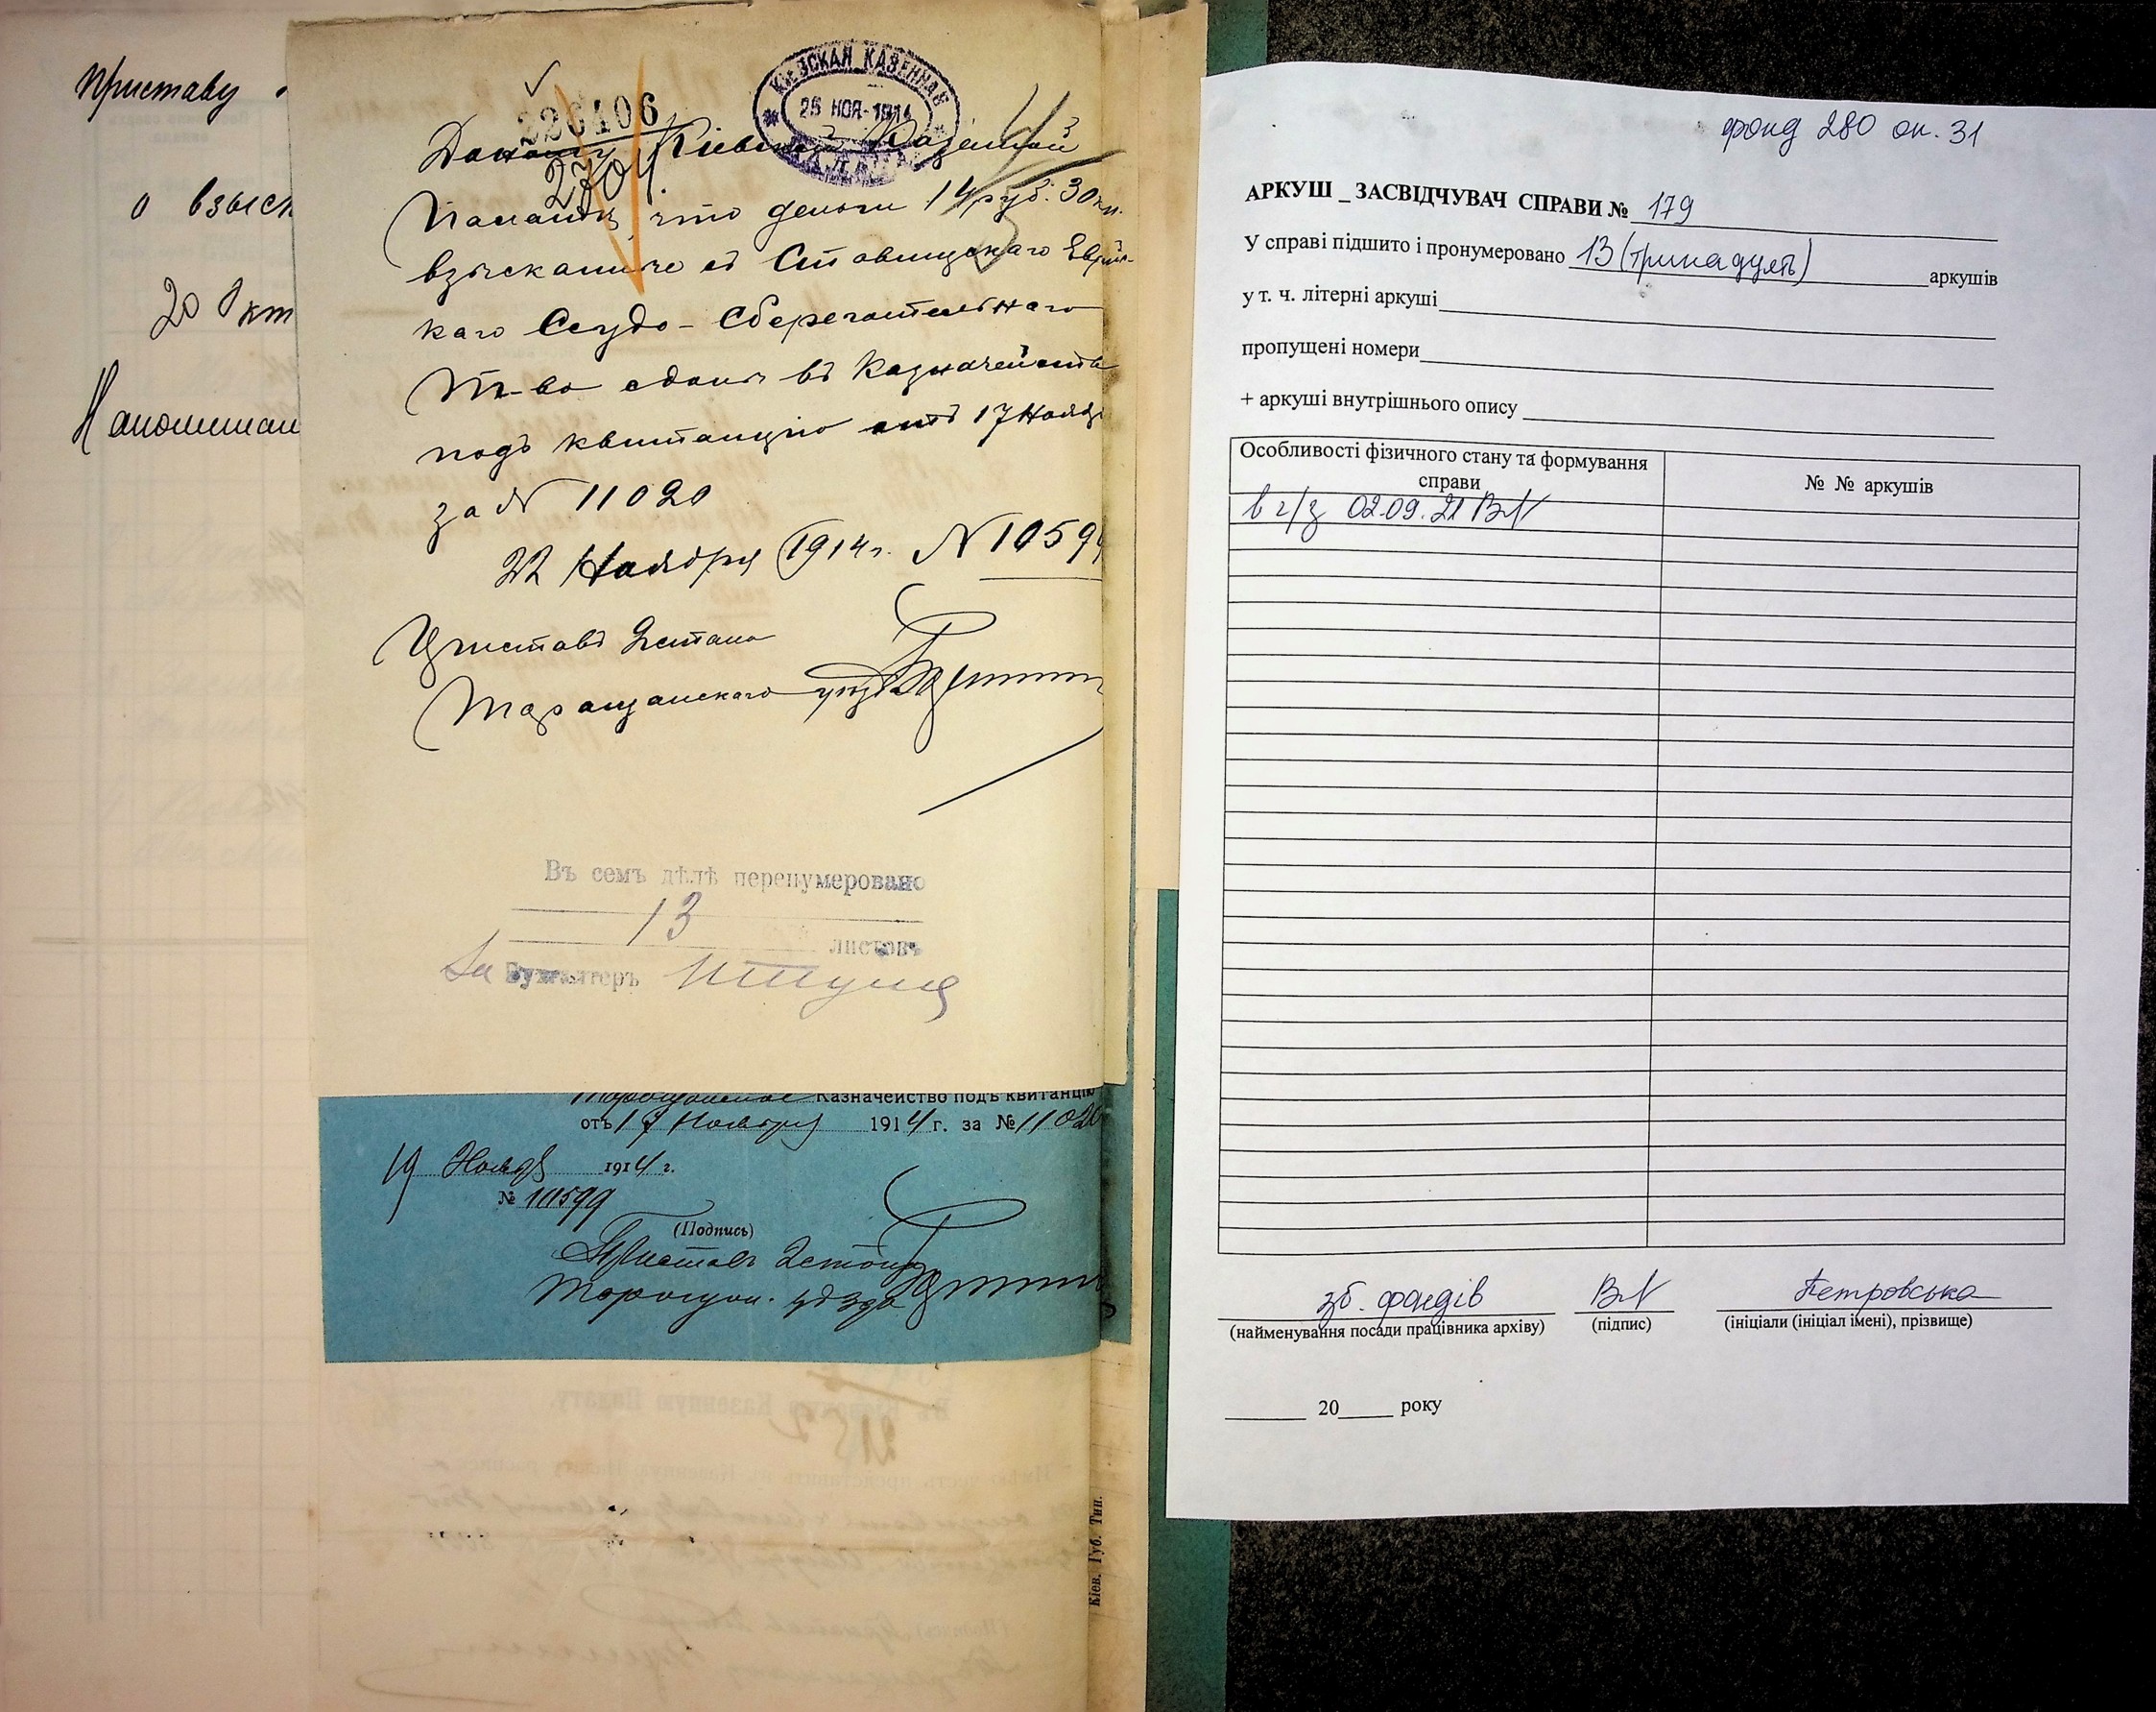 Приставу
о взыск
20 Окт
Напоминан
226406
2704
КІЕВСКАЯ КАЗЕННАЯ
25 НОЯ-1914
ПАЛАТА
Доношу Кіевской Казенной
Палатѣ, что деньги 14 руб. 30 коп.
взысканные съ Ставищскаго Еврей-
каго Ссудо-Сберегательнаго
Т-ва сданы въ Казначейство
подъ квитанцію отъ 17 Ноября
за № 11020
22 Ноября 1914 г. № 10599
Приставъ 2 стана
Таращанскаго уѣзда
Въ семъ дѣлѣ перенумеровано
13
листовъ
За Бухгалтеръ
Таращанское Казначейство подъ квитанцію
отъ 17 Ноября 1914 г. за № 11020
19 Ноября 1914 г.
№ 10599
(Подпись)
Приставъ 2 стана
Таращан. уѣзда
Въ Кіевскую Казенную Палату.
2152
Кіев. Губ. Тип.
фонд 280 оп. 31
АРКУШ _ ЗАСВІДЧУВАЧ СПРАВИ № 179
У справі підшито і пронумеровано 13 (тринадцять) аркушів
у т. ч. літерні аркуші
пропущені номери
+ аркуші внутрішнього опису
Особливості фізичного стану та формування
справи
№ № аркушів
в г/з 02.09.21
зб. фондів
Петровська
(найменування посади працівника архіву) (підпис) (ініціали (ініціал імені), прізвище)
20 року